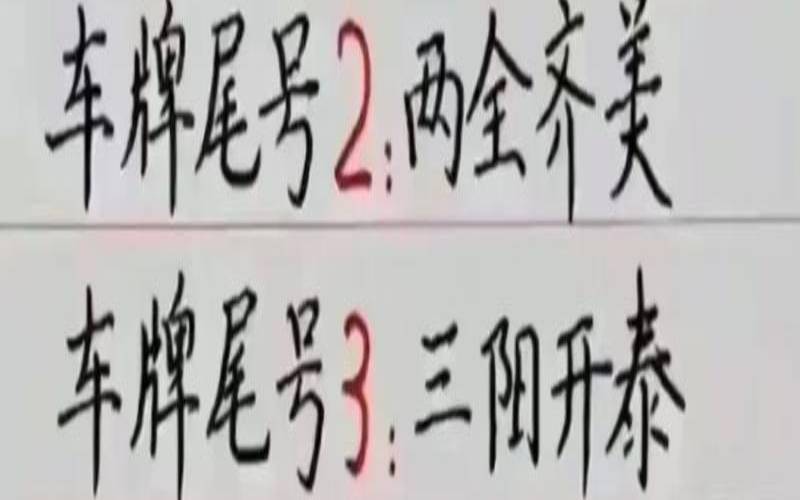 车牌尾号2:两全齐美
车牌尾号3:三阳开泰